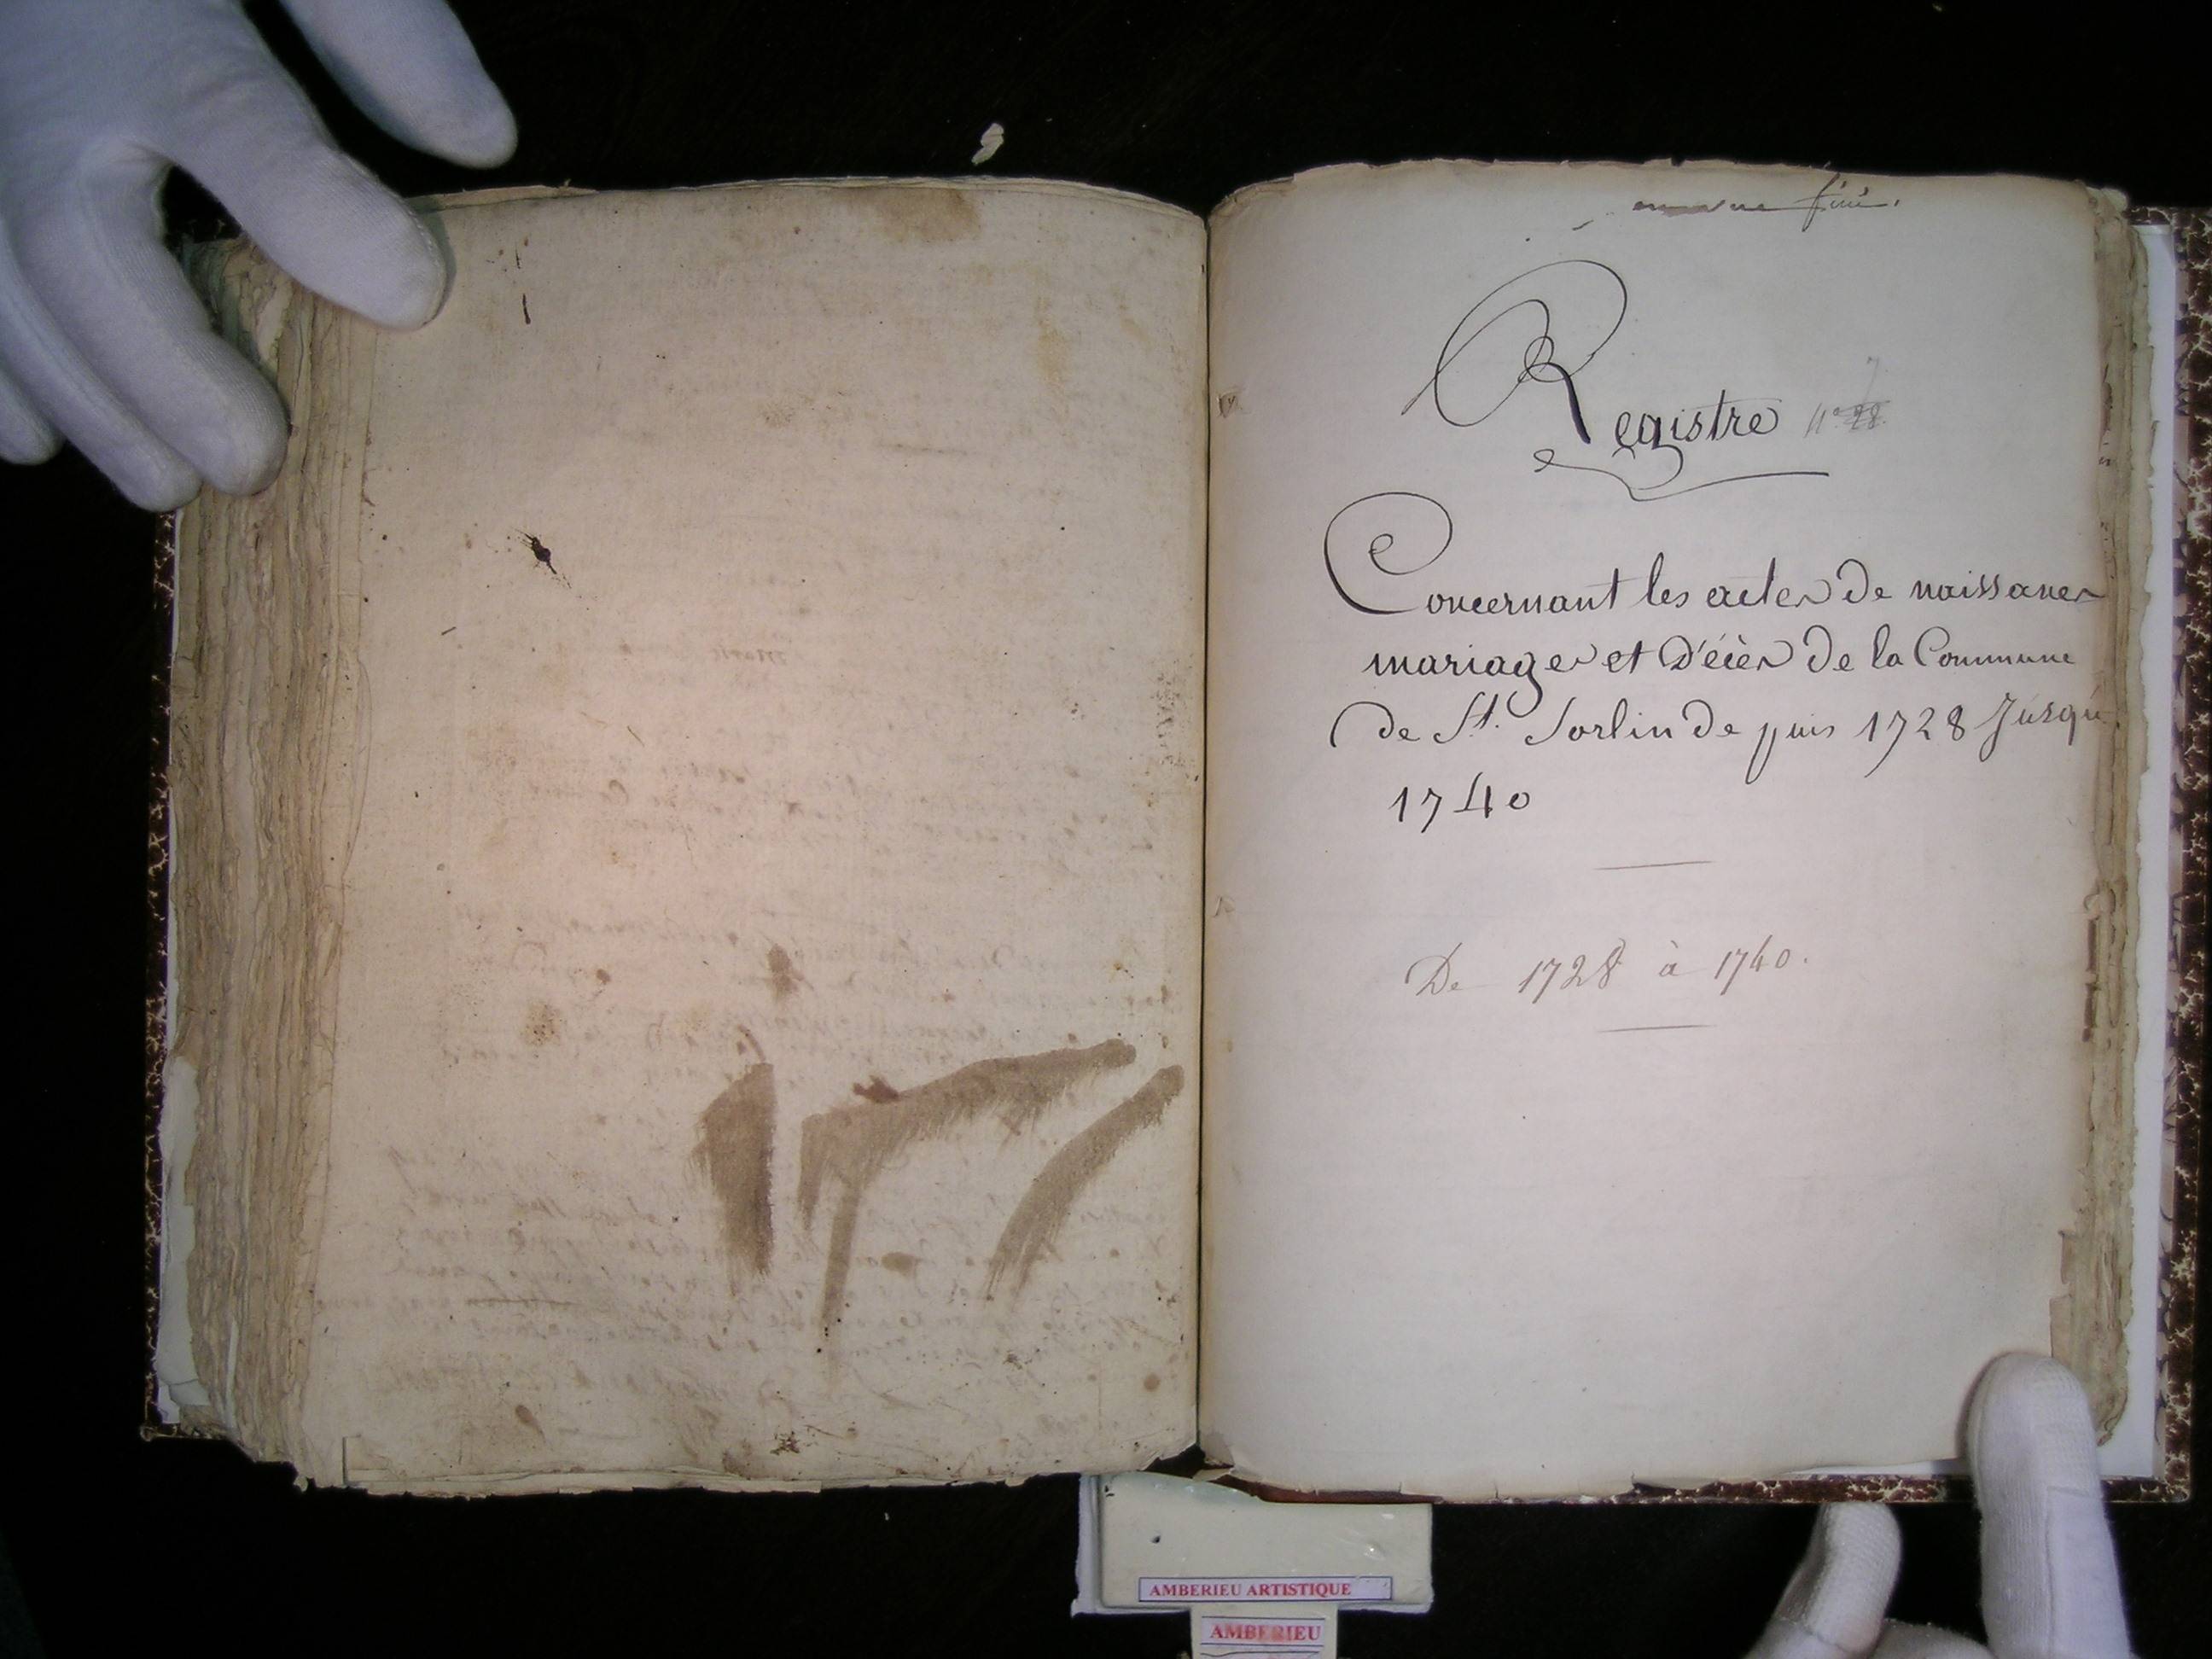 fini.
Registre N° 28 7
Concernant les actes de naissances
mariages et D'écès de la Commune
de St. Sorlin de puis 1728 Jusqu'
1740
De 1728 à 1740.
AMBERIEU ARTISTIQUE
AMBERIEU